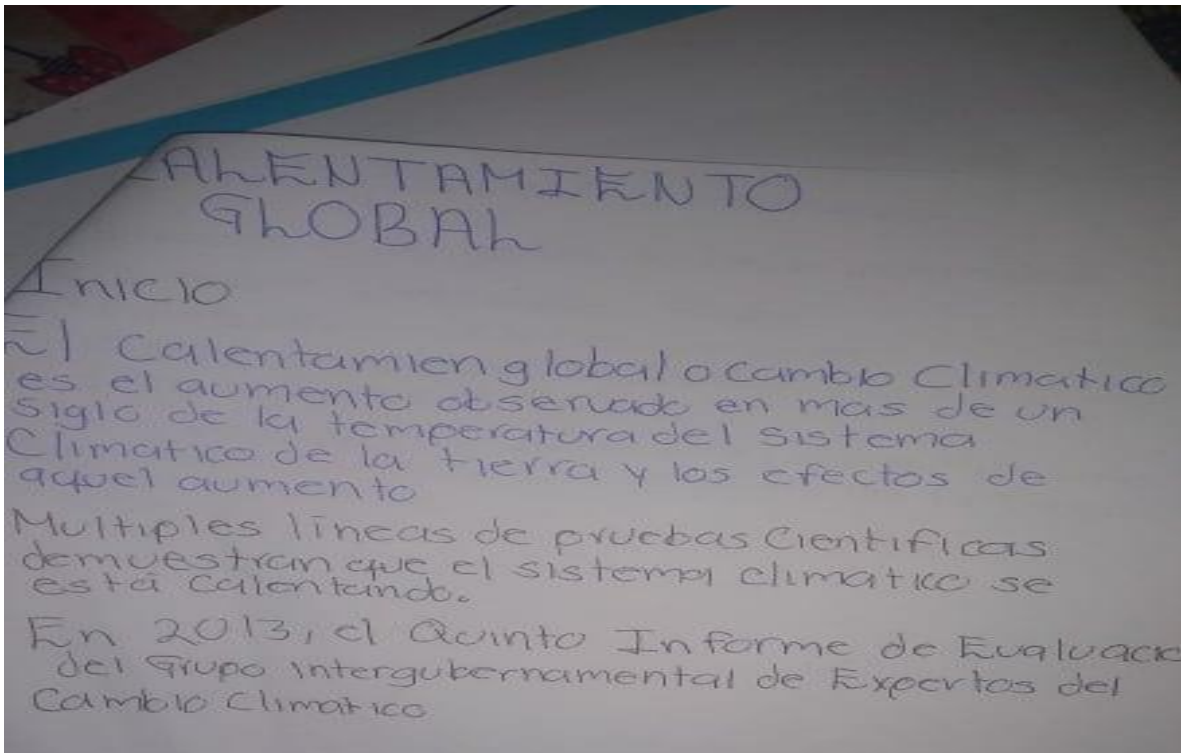 CALENTAMIENTO
GLOBAL
Inicio
El Calentamien global o cambio Climatico
es el aumento observado en mas de un
siglo de la temperatura del sistema
Climatico de la tierra y los efectos de
aquel aumento
Multiples líneas de pruebas Cientificas
demuestran que el sistema climatico se
está calentando.
En 2013, el Quinto Informe de Evaluacio
del Grupo intergubernamental de Expertos del
Cambio Climatico